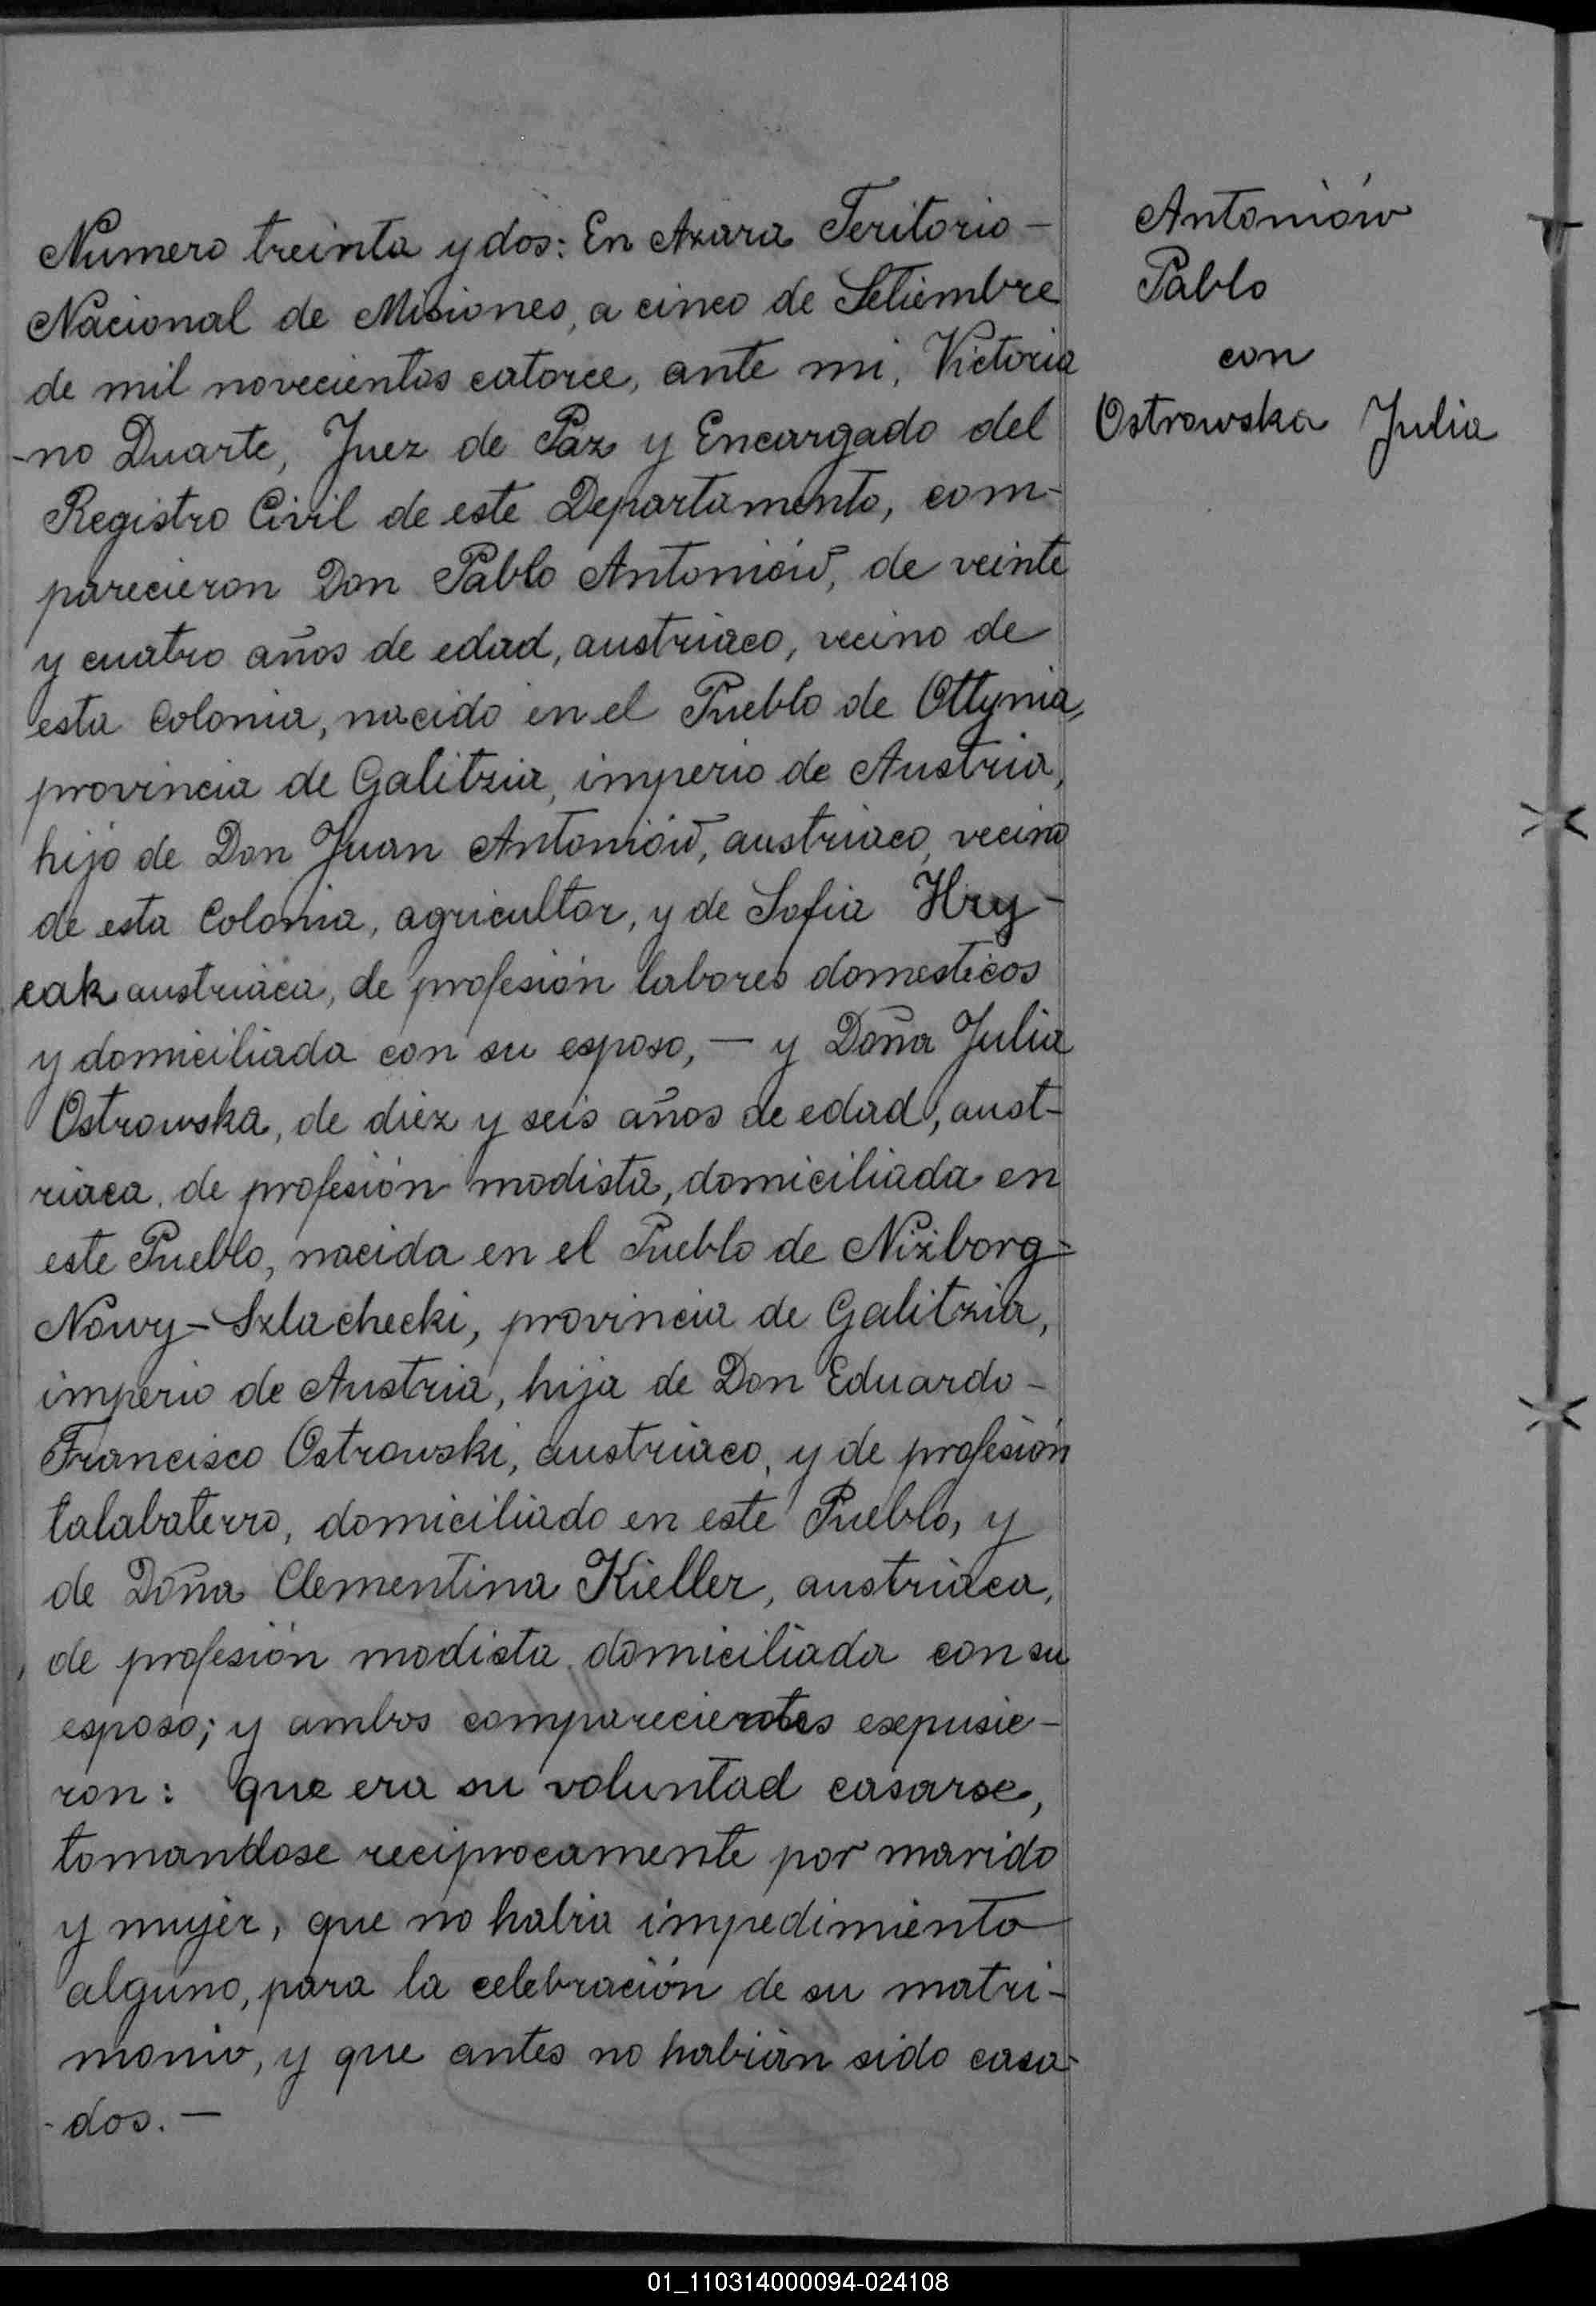 Numero treinta y dos: En Azara Teritorio -
Nacional de Misiones, a cinco de Setiembre
de mil novecientos catorce, ante mi, Victoria
-no Duarte, Juez de Paz y Encargado del
Registro Civil de este Departamento, com-
parecieron Don Pablo Antoniów, de veinte
y cuatro años de edad, austriaco, vecino de
esta Colonia, nacido en el Pueblo de Ottynia,
provincia de Galitzia, imperio de Austria,
hijo de Don Juan Antoniów, austriaco, vecino
de esta Colonia, agricultor, y de Sofia Hry-
cak austriaca, de profesión labores domesticos
y domiciliada con su esposo, — y Doña Julia
Ostrowska, de diez y seis años de edad, aust-
riaca, de profesión modista, domiciliada en
este Pueblo, nacida en el Pueblo de Niżborg-
Nowy-Szlachecki, provincia de Galitzia,
imperio de Austria, hija de Don Eduardo -
Francisco Ostrowski, austriaco, y de profesión
talabaterro, domiciliado en este Pueblo, y
de Doña Clementina Kieller, austriaca,
de profesión modista, domiciliada con su
esposo; y ambos comparecientes esepusie-
ron: que era su voluntad casarse,
tomandose reciprocamente por marido
y mujer, que no habia impedimiento
alguno, para la celebración de su matri-
monio, y que antes no habian sido casa-
-dos. —
Antoniów
Pablo
con
Ostrowska Julia
01_110314000094-024108